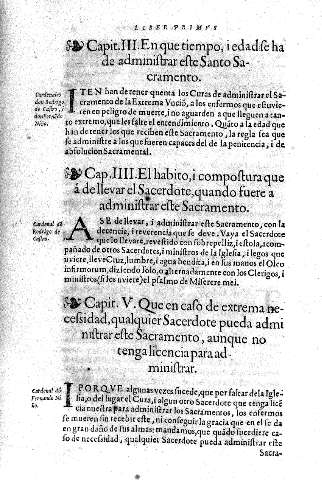 LIBER PRIMVS
Capit. III. En que tiempo, i edad se ha
de administrar este Santo Sa-
cramento.
ITEN han de tener quenta los Curas de administrar el Sa-
cramento de la Extrema Vnciõ, a los enfermos que estuvie-
ren en peligro de muerte, i no aguarden a que lleguen a tan-
to extremo, que les falte el entendimiento. Quãto a la edad que
han de tener los que reciben este Sacramento, la regla sea que
se administre a los que fueren capaces del de la penitencia, i de
absolucion Sacramental.
Cap. IIII. El habito, i compostura que
á de llevar el Sacerdote, quando fuere a
administrar este Sacramento.
Cardenal dõ
Rodrigo de
Castro.
ASE de llevar, i administrar este Sacramento, con la
decencia, i reverencia que se deve. Vaya el Sacerdote
que lo llevare, revestido con sobrepelliz, i estola, acom-
pañado de otros Sacerdotes, i ministros de la Iglesia, i legos que
uviere, lleve Cruz, lumbre, i agua bendita, i en sus manos el Oleo
infirmorum, diziendo solo, o alternadamente con los Clerigos, i
ministros (si los uviere) el psalmo de Miserere mei.
Capit. V. Que en caso de extrema ne-
cessidad, qualquier Sacerdote pueda admi
nistrar este Sacramento, aunque no
tenga licencia para ad-
ministrar.
Cardenal dõ
Fernando Ni
ño.
IPORQVE algunas vezes sucede, que por faltar de la Igle-
sia, o del lugar el Cura, i algun otro Sacerdote que tenga licē
cia nuestra para administrar los Sacramentos, los enfermos
se mueren sin recebir este, ni conseguir la gracia que en el se da
en gran daño de sus almas: mandamos, que quãdo sucediere ca-
so de necessidad, qualquier Sacerdote pueda administrar este
Sacra-